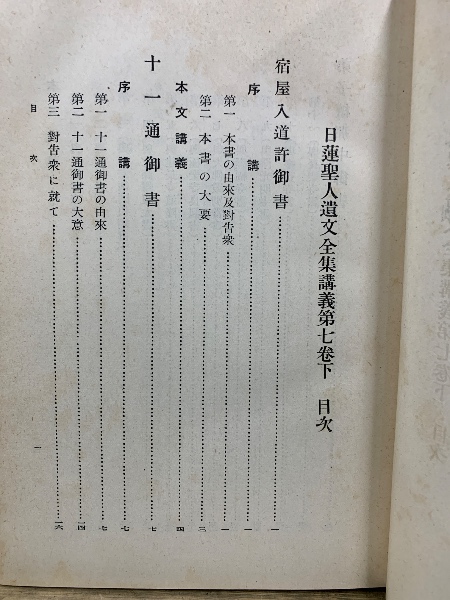 日蓮聖人遺文全集講義第七卷下 目次
宿屋入道許御書……一
序講……一
第一 本書の由來及對告衆……一
第二 本書の大要……三
本文講義……四
十一通御書……七
序講……七
第一 十一通御書の由來……七
第二 十一通御書の大意……一四
第三 對告衆に就て……一六
目次
一